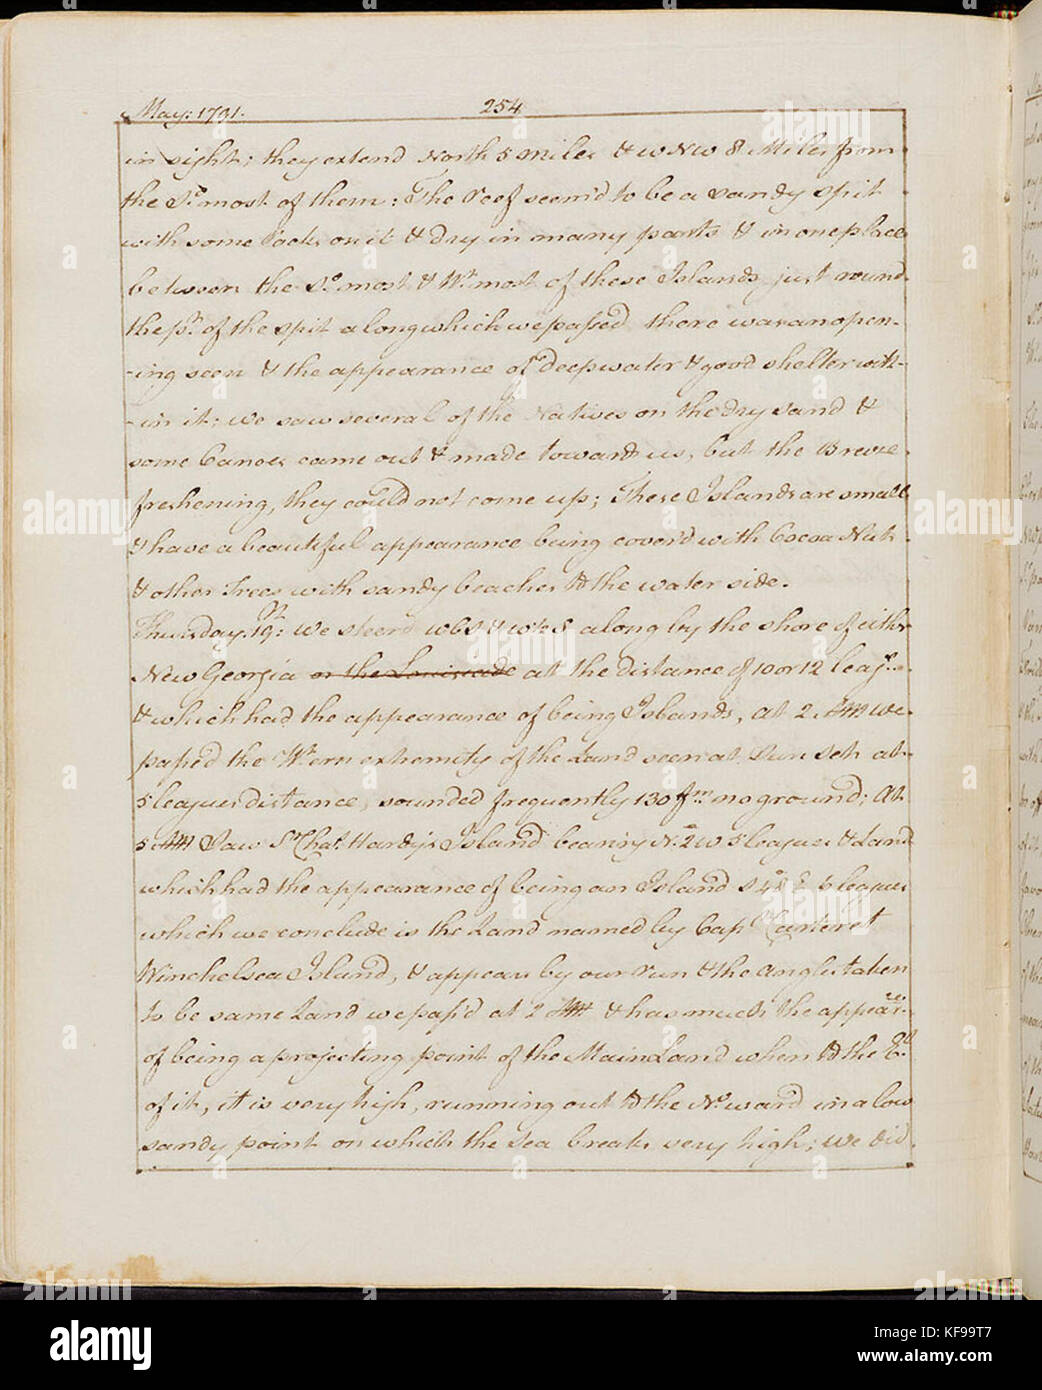 May: 1791. 254
in sight; they extend North 5 miles & WNW 8 Miles from
the So. most of them: The reef seem'd to be a sandy spit
with some rocks on it & dry in many parts & in one place
between the So. most & Wt. most of these Islands, just round
the pt. of the spit along which we passed there was an open-
-ing seen & the appearance of deep water & good shelter with-
-in it: we saw several of the Natives on the dry sand &
some Canoes came out & made towards us, but the Breeze
freshening, they could not come up; These Islands are small
& have a beautiful appearance being cover'd with Cocoa Nuts
& other Trees with sandy beaches to the water side.
Thursday 19th: we steer'd WbS & W½S along by the shore of eithr
New Georgia or the Louisiade at the distance of 10 or 12 leags.
& which had the appearance of being Islands, at 2 AM we
passed the Wtern extremity of the Land seen at Sun Set at
5 leagues distance, sounded frequently 130 fms. no ground; At
5 AM Saw Sr. Chas. Hardy's Island bearing N.2W 5 leagues & Land
which had the appearance of being an Island S 48 E 6 leagues
which we conclude is the Land named by Capt Carteret
Winchelsea Island, & appears by our run & the Angles taken
to be same Land we pass'd at 2 AM & has much the appearce.
of being a projecting point of the Main Land when to the Ed.
of it, it is very high, running out to the No. ward in a low
sandy point on which the sea breaks very high; we did
alamy
KF99T7
www.alamy.com